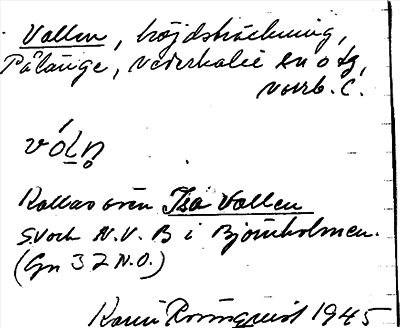 Vallen, höjdsträckning,
Pålänge, Nederkalix sn o tg,
Norrb. C.
vóḷṇ
Kallas även Isa Vallen
S.V och N.V. B i Björnholmen.
(Gn 37 N.O.)
Karin Rönnquist 1945